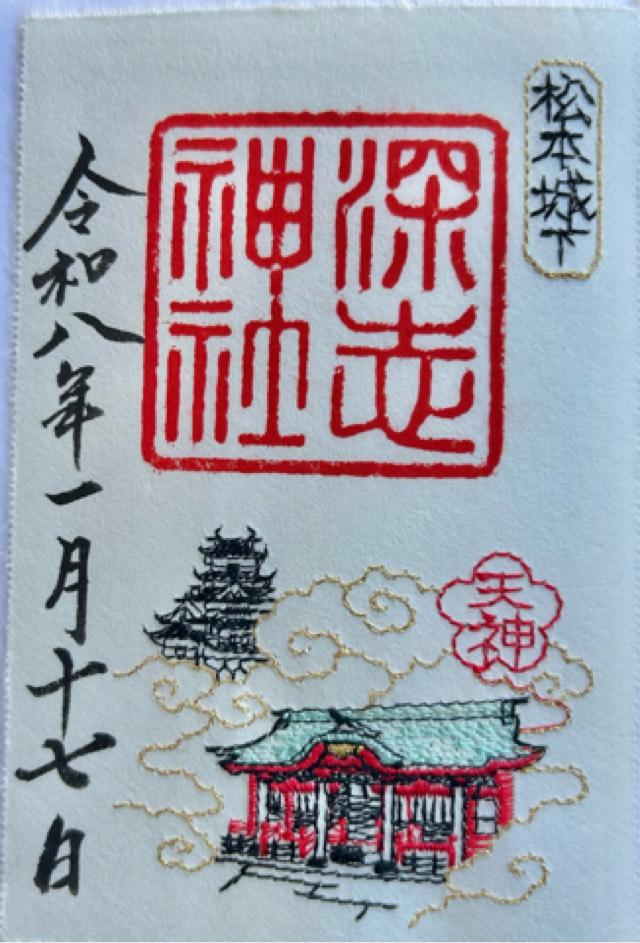 松本城下
深志
神社
天神
令和八年一月十七日